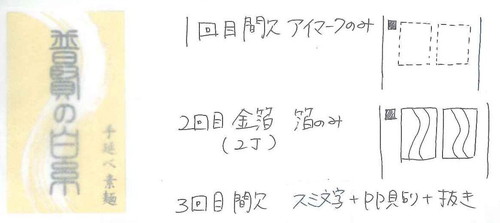 普賢の白糸
手延べ素麺
1回目 間欠 アイマークのみ
2回目 金箔 箔のみ
(2丁)
3回目 間欠 スミ文字+PP貼り+抜き